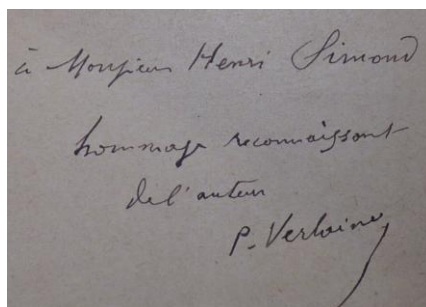 à Monsieur Henri Simond
hommage reconnaissant
de l'auteur
P. Verlaine